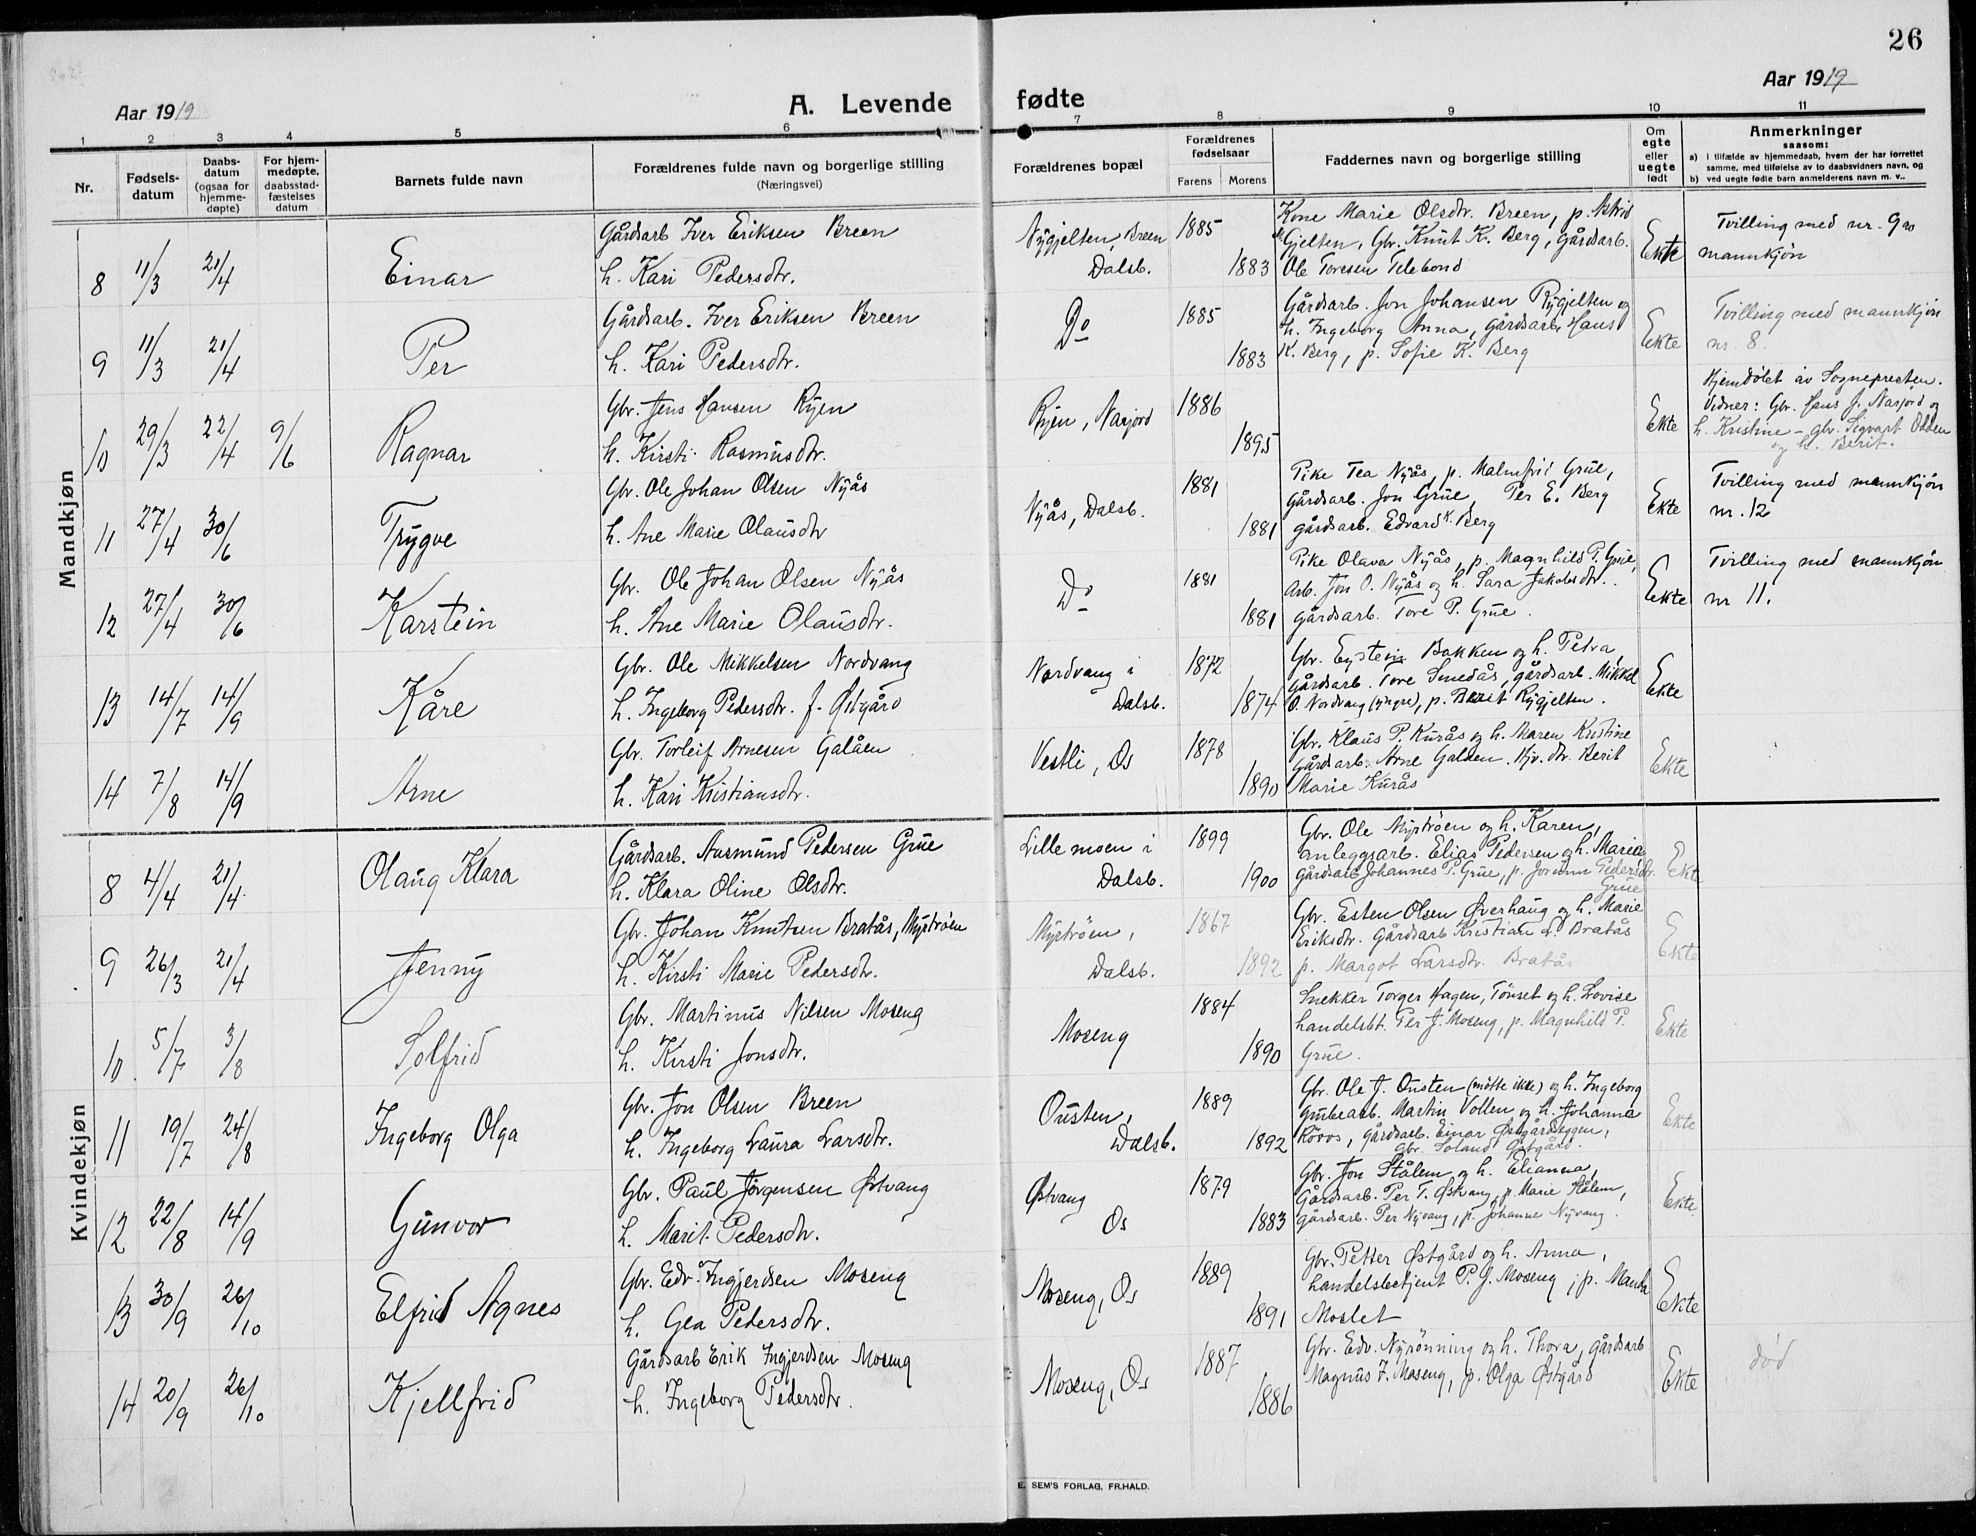 26
Aar 1919
A. Levende fødte
Aar 1919
1 2 3 4 5 6 7 8 9 10 11
Nr.
Fødsels-
datum
Daabs-
datum
(ogsaa for
hjemme-
døpte)
For hjem-
medøpte,
daabsstad-
fæstelses
datum
Barnets fulde navn
Forældrenes fulde navn og borgerlige stilling
(Næringsvei)
Forældrenes bopæl
Forældrenes
fødselsaar
Farens Morens
Faddernes navn og borgerlige stilling
Om
egte
eller
uegte
født
Anmerkninger
saasom:
a) i tilfælde av hjemmedaab, hvem der har forrettet
samme, med tilføielse av to daabsvidners navn, og
b) ved uegte fødte barn anmelderens navn m. v..
Mandkjøn
8 11/3 21/4 Einar
Gårdsarb Iver Eriksen Breen
h. Kari Pedersdtr.
Nygjelten Breen
Dalsb.
1885
1883
Kone Marie Olsdtr. Breen, p. Astrid
Gjelten, Gbr. Knut K. Berg, Gårdsarb.
Ole Toresen Telebond
Ekte
Tvilling med nr. 9
mannkjøn
9 11/3 21/4 Per
Gårdsarb. Iver Eriksen Breen
h. Kari Pedersdtr.
Do
1885
1883
Gårdsarb. Jon Johansen Rygjelten og
h. Ingeborg Anna, Gårdsarb. Hans
K. Berg, p. Sofie K. Berg
Ekte
Tvilling med mannkjøn
nr. 8.
10 29/3 22/4 9/6 Ragnar
Gbr. Jens Hansen Ryen
h. Kirsti Rasmusdtr.
Ryen, Narjord
1886
1895
Ekte
Hjemdøbt av Sognepresten.
Vidner: Gbr. Hans J. Narjord og
h. Kristine – gbr. Sigvart Odden
og h. Berit.
11 27/4 30/6 Trygve
Gbr. Ole Johan Olsen Nyås
h. Ane Marie Olausdtr
Nyås, Dalsb.
1881
1881
Pike Tea Nyås, p. Malmfrid Grue,
Gårdsarb. Jon Grue, Per E. Berg
gårdsarb. Edvard K. Berg
Ekte
Tvilling med mannkjøn
nr. 12
12 27/4 30/6 Karstein
Gbr. Ole Johan Olsen Nyås
h. Ane Marie Olausdtr.
Do
1881
1881
Pike Olava Nyås, p. Magnhild P. Grue,
Arb. Jon O. Nyås og h. Sara Jakobsdtr.
gårdsarb. Tore P. Grue.
Ekte
Tvilling med mannkjøn
nr 11.
13 14/7 14/9 Kåre
Gbr. Ole Mikkelsen Nordvang
h. Ingeborg Pedersdtr. f. Østgård
Nordvang i
Dalsb.
1872
1874
Gbr. Eystein Bakken og h. Petra,
gårdsarb. Tore Smedås, gårdsarb. Mikkel
O. Nordvang (yngre), p. Berit Rygjelten.
Ekte
14 7/8 14/9 Arne
Gbr. Torleif Arnesen Galåen
h. Kari Kristiansdtr.
Vestli, Os
1878
1890
Gbr. Klaus P. Kurås og h. Maren Kristine
Gårdsarb. Arne Galåen. Hjv. dtr. Berit
Marie Kurås
Ekte
Kvindekjøn
8 4/4 21/4 Olaug Klara
Gårdsarb. Aasmund Pedersen Grue
h. Klara Oline Olsdtr.
Lillemoen i
Dalsb.
1899
1900
Gbr. Ole Myrtrøen og h. Karen,
anleggsarb. Elias Pedersen og h. Marie
gårdsarb Johannes P. Grue, p. Jorunn Pedersdtr.
Grue
Ekte
9 26/3 21/4 Jenny
Gbr. Johan Knutsen Bratås, Myrtrøen
h. Kirsti Marie Pedersdtr.
Myrtrøen,
Dalsb.
1867
1892
Gbr. Esten Olsen Øverhaug og h. Marie
Eriksdtr. Gårdsarb Kristian L. Bratås
p. Margot Larsdtr. Bratås
Ekte
10 5/7 3/8 Solfrid
Gbr. Martinus Nilsen Moseng
h. Kirsti Jonsdtr.
Moseng
1884
1890
Snekker Torger Hagen, Tönset og h. Lovise
handelsbt. Per J. Moseng, p. Magnhild P.
Grue.
Ekte
11 19/7 24/8 Ingeborg Olga
Gbr. Jon Olsen Breen
h. Ingeborg Laura Larsdtr.
Ousten,
Dalsb.
1889
1892
Gbr. Ole J. Ousten (mötte ikke) og h. Ingeborg
Grubearb. Martin Vollen og h. Johanna
Röros, gårdsarb. Einar Østgårdeggen,
gbr. Østgård
Ekte
12 22/8 14/9 Gunvor
Gbr. Paul Jørgensen Østvang
h. Marit Pedersdtr.
Østvang
Os
1879
1883
Gbr. Jon Stålem og h. Elianna,
Gårdsarb. Per T. Østvang, p. Marie Stålem,
gårdsarb. Per Nyvang, p. Johanne Nyvang.
Ekte
13 30/9 26/10 Elfrid Agnes
Gbr. Edv. Ingjerdsen Moseng
h. Gea Pedersdtr.
Moseng, Os
1889
1891
Gbr. Petter Østgård og h. Anna,
handelsbetjent P. J. Moseng, p. Manda
Moslet
Ekte
14 20/9 26/10 Kjellfrid
Gårdsarb Erik Ingjerdsen Moseng
h. Ingeborg Pedersdtr.
Moseng, Os
1887
1886
Gbr. Edv. Nyrönning og h. Thora, gårdsarb
Magnus I. Moseng, p. Olga Østgård
Ekte
død
E. SEM'S FORLAG, FR.HALD.